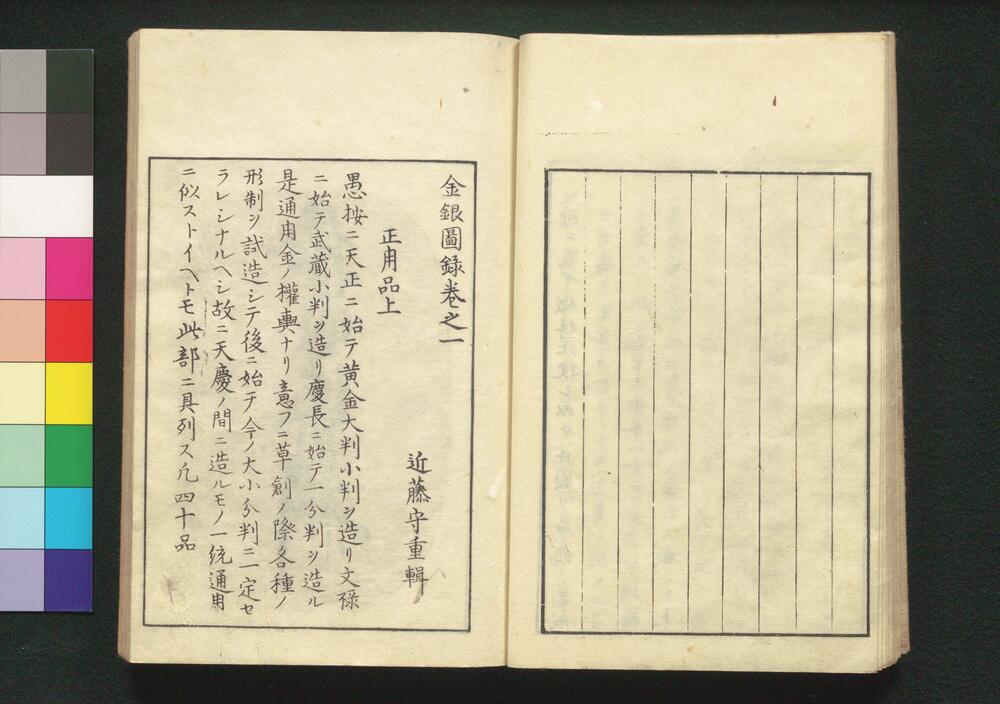 金銀圖錄卷之一
近藤守重輯
正用品上
愚按ニ天正ニ始テ黃金大判小判ヲ造リ文祿
ニ始テ武藏小判ヲ造リ慶長ニ始テ一分判ヲ造ル
是通用金ノ權輿ナリ意フニ草創ノ際各種ノ
形制ヲ試造シテ後ニ始テ今ノ大小分判ニ一定セ
ラレシナルヘシ故ニ天慶ノ間ニ造ルモノ一統通用
ニ似ストイヘトモ此部ニ具列ス凡四十品